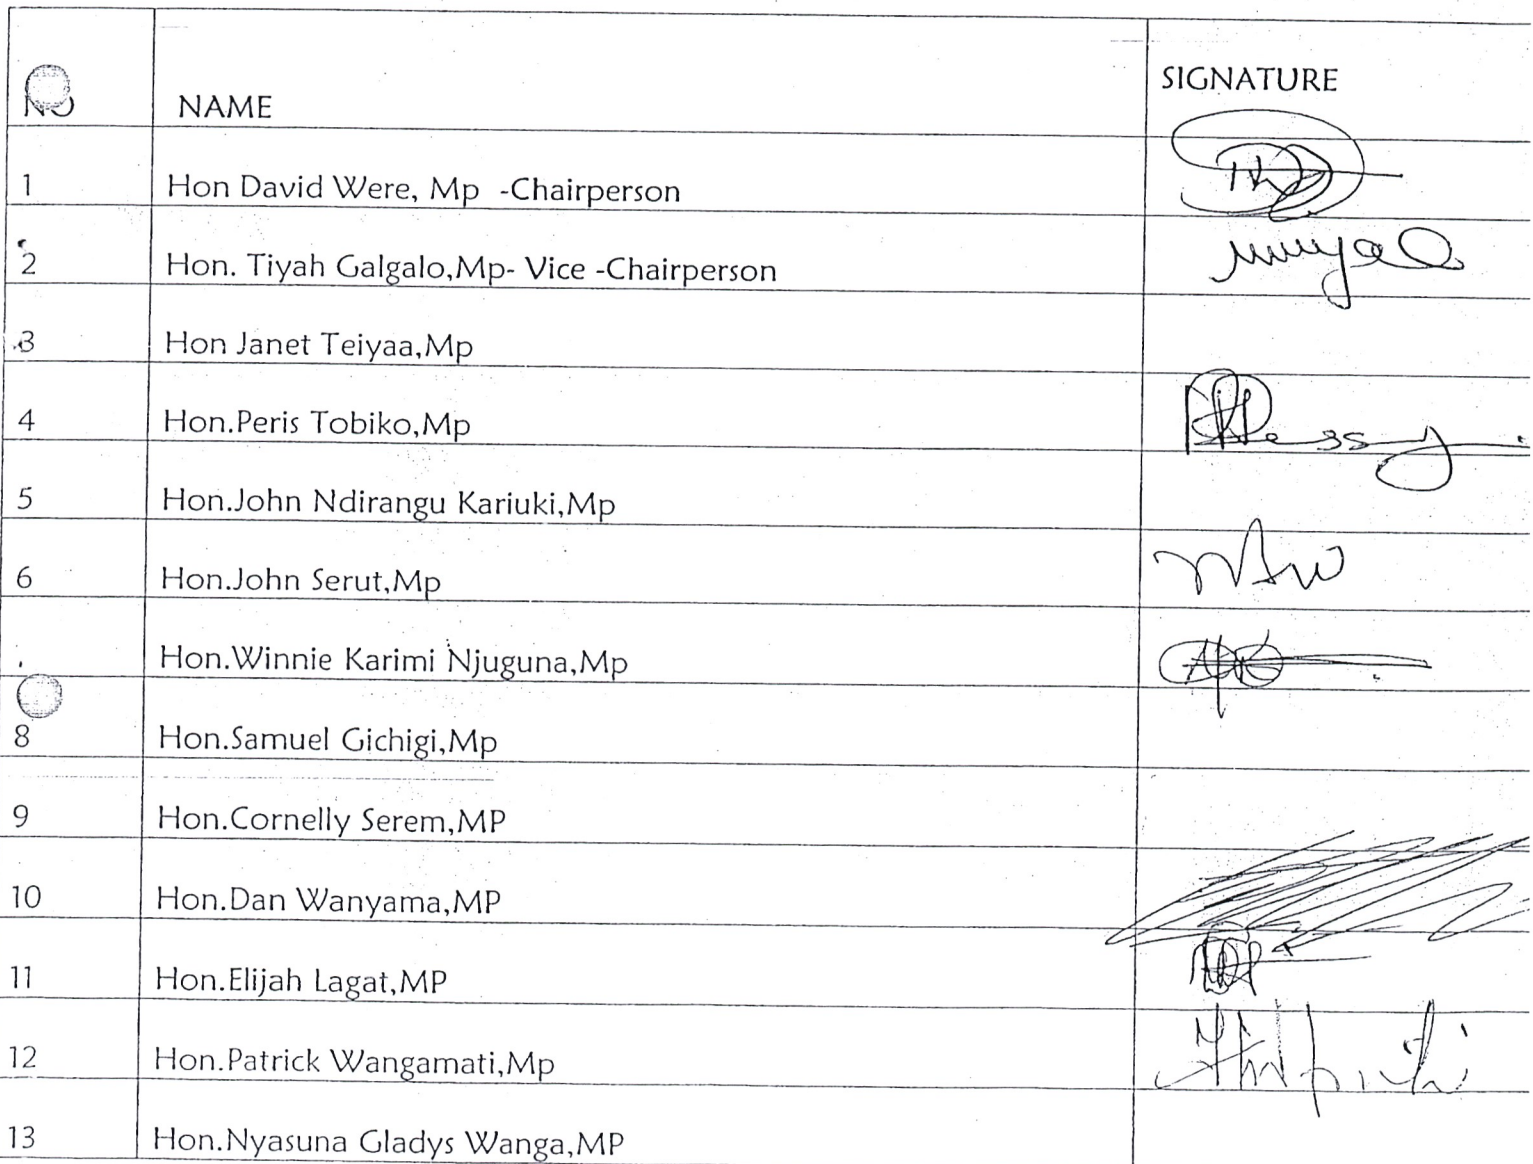 NO NAME SIGNATURE
1 Hon David Were, Mp -Chairperson
2 Hon. Tiyah Galgalo,Mp- Vice -Chairperson
3 Hon Janet Teiyaa,Mp
4 Hon.Peris Tobiko,Mp
5 Hon.John Ndirangu Kariuki,Mp
6 Hon.John Serut,Mp
Hon.Winnie Karimi Njuguna,Mp
8 Hon.Samuel Gichigi,Mp
9 Hon.Cornelly Serem,MP
10 Hon.Dan Wanyama,MP
11 Hon.Elijah Lagat,MP
12 Hon.Patrick Wangamati,Mp
13 Hon.Nyasuna Gladys Wanga,MP